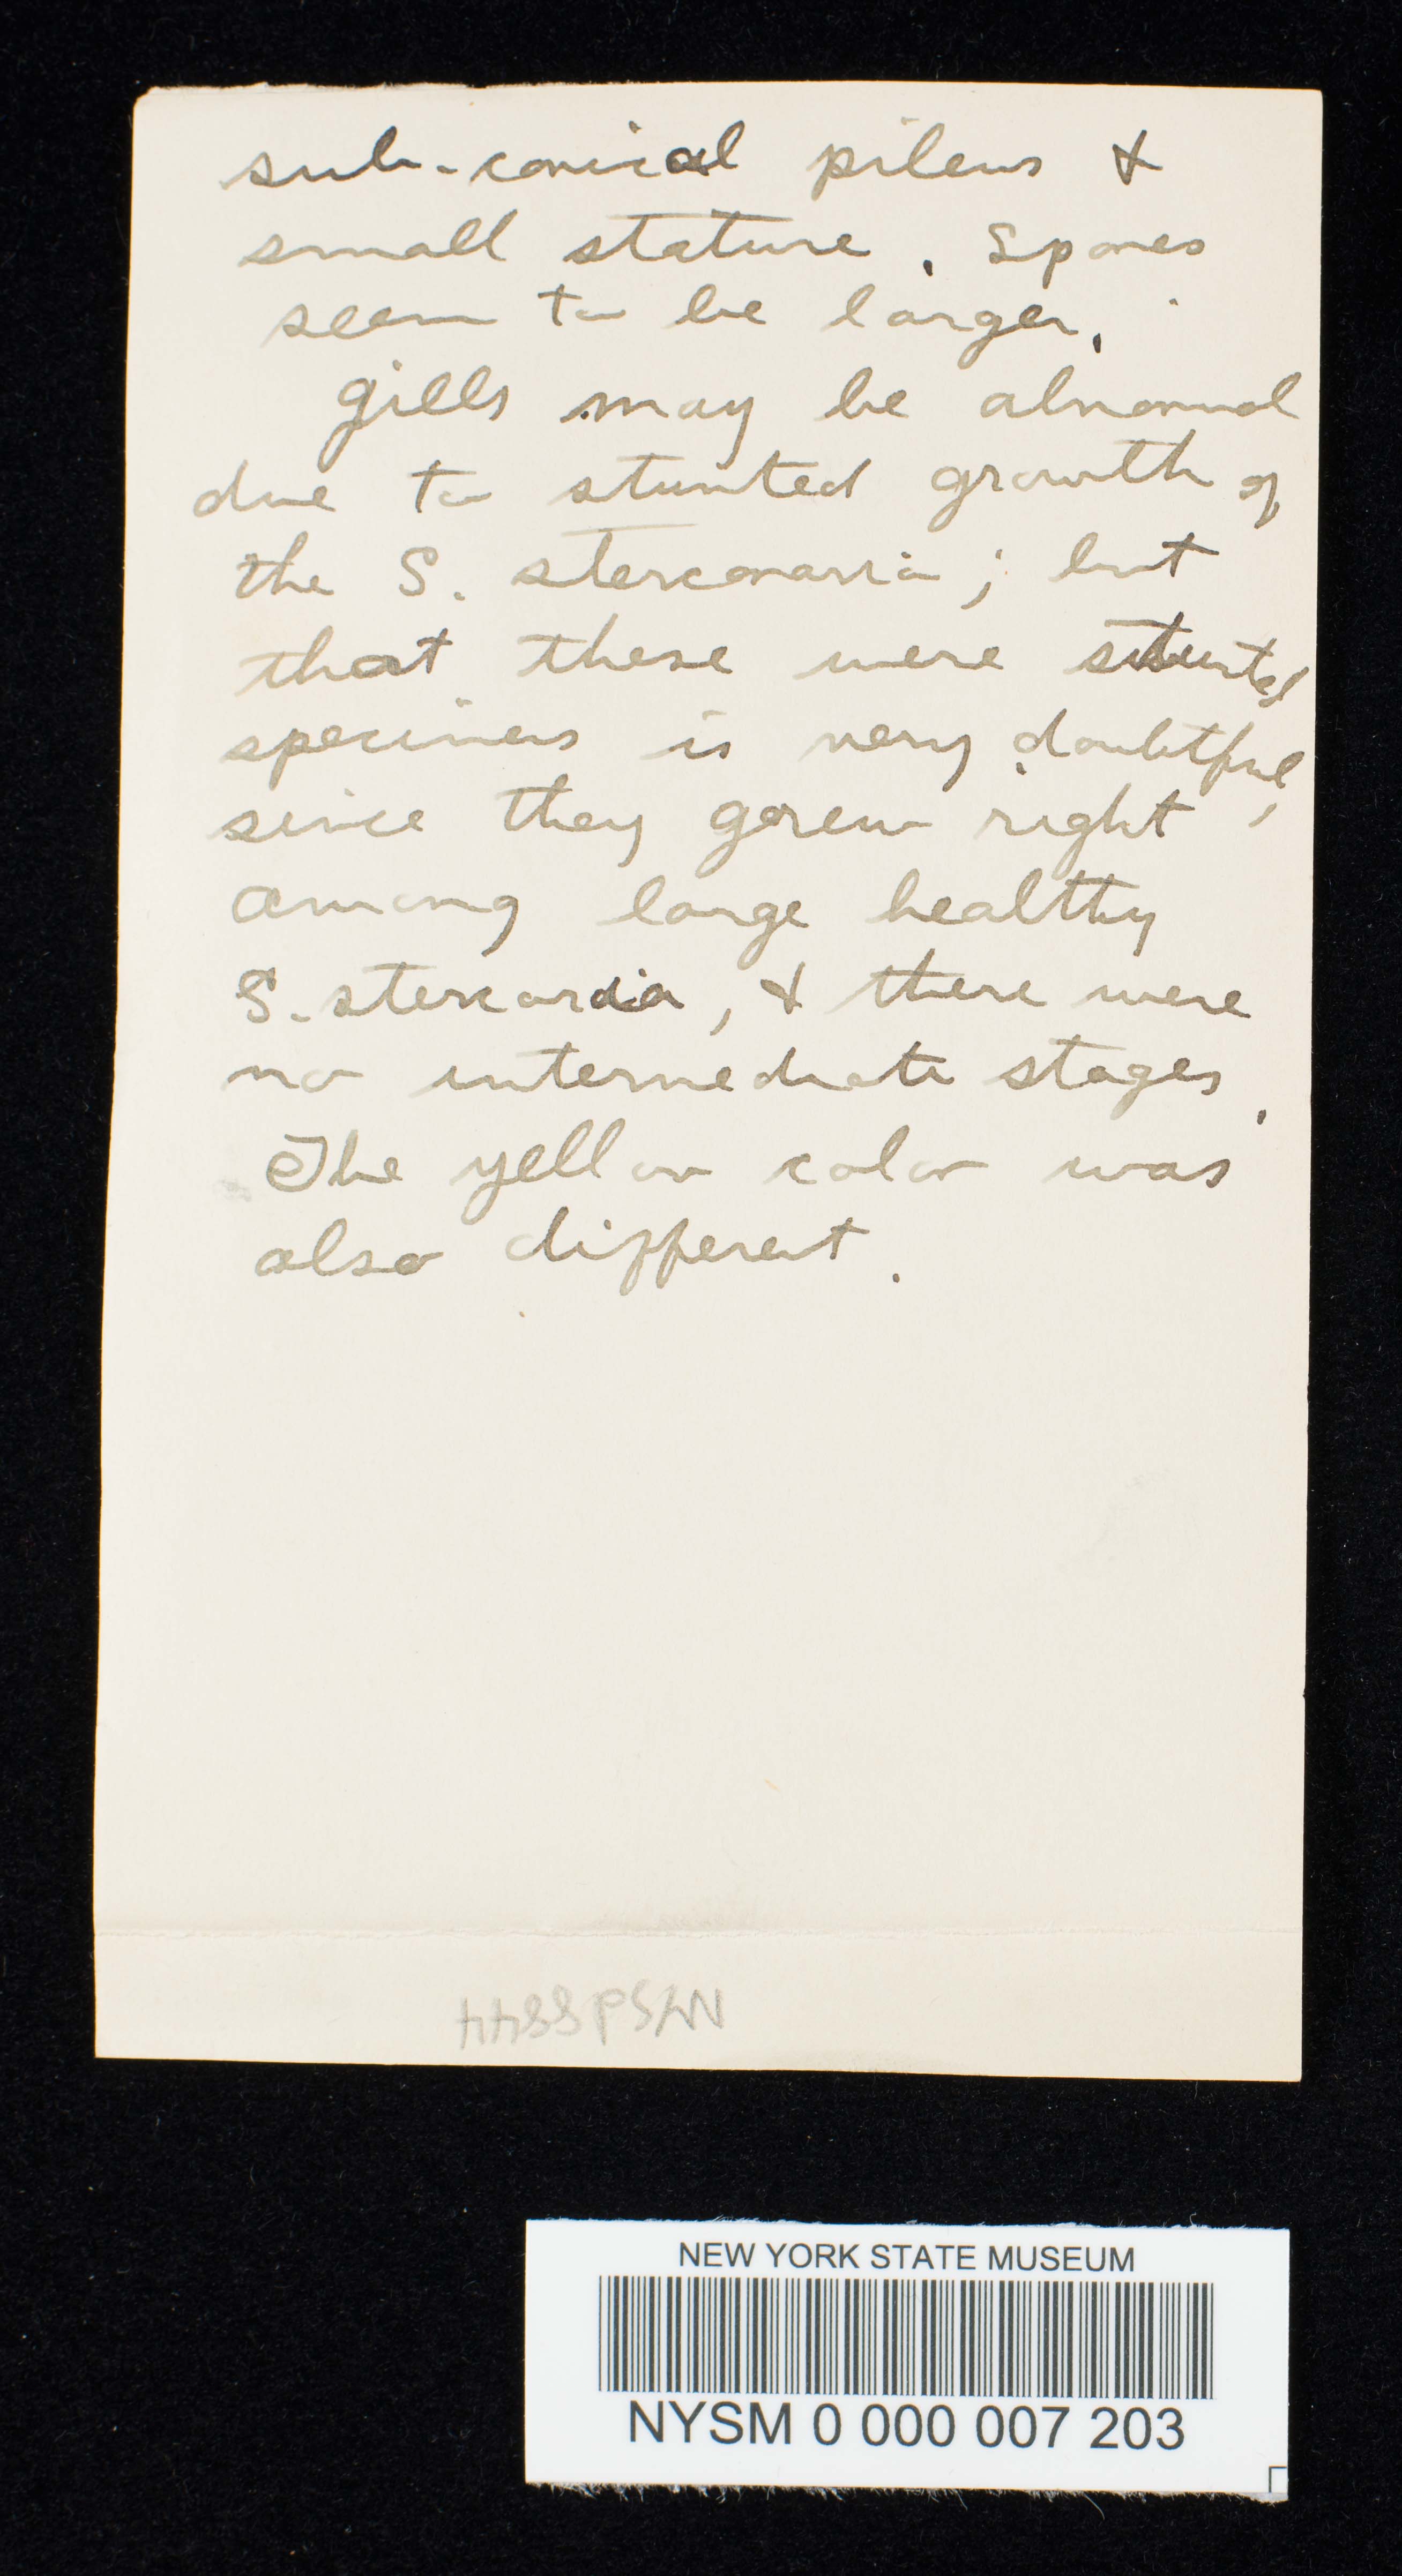 sub-conical pileus &
small stature. Spores
seem to be larger.
Gills may be abnormal
due to stunted growth of
the S. stercoraria; but
that these were stunted
specimens is very doubtful,
since they grew right
among large healthy
S. stercoraria, & there were
no intermediate stages.
The yellow color was
also different.
NYSd8844
NEW YORK STATE MUSEUM
NYSM 0 000 007 203